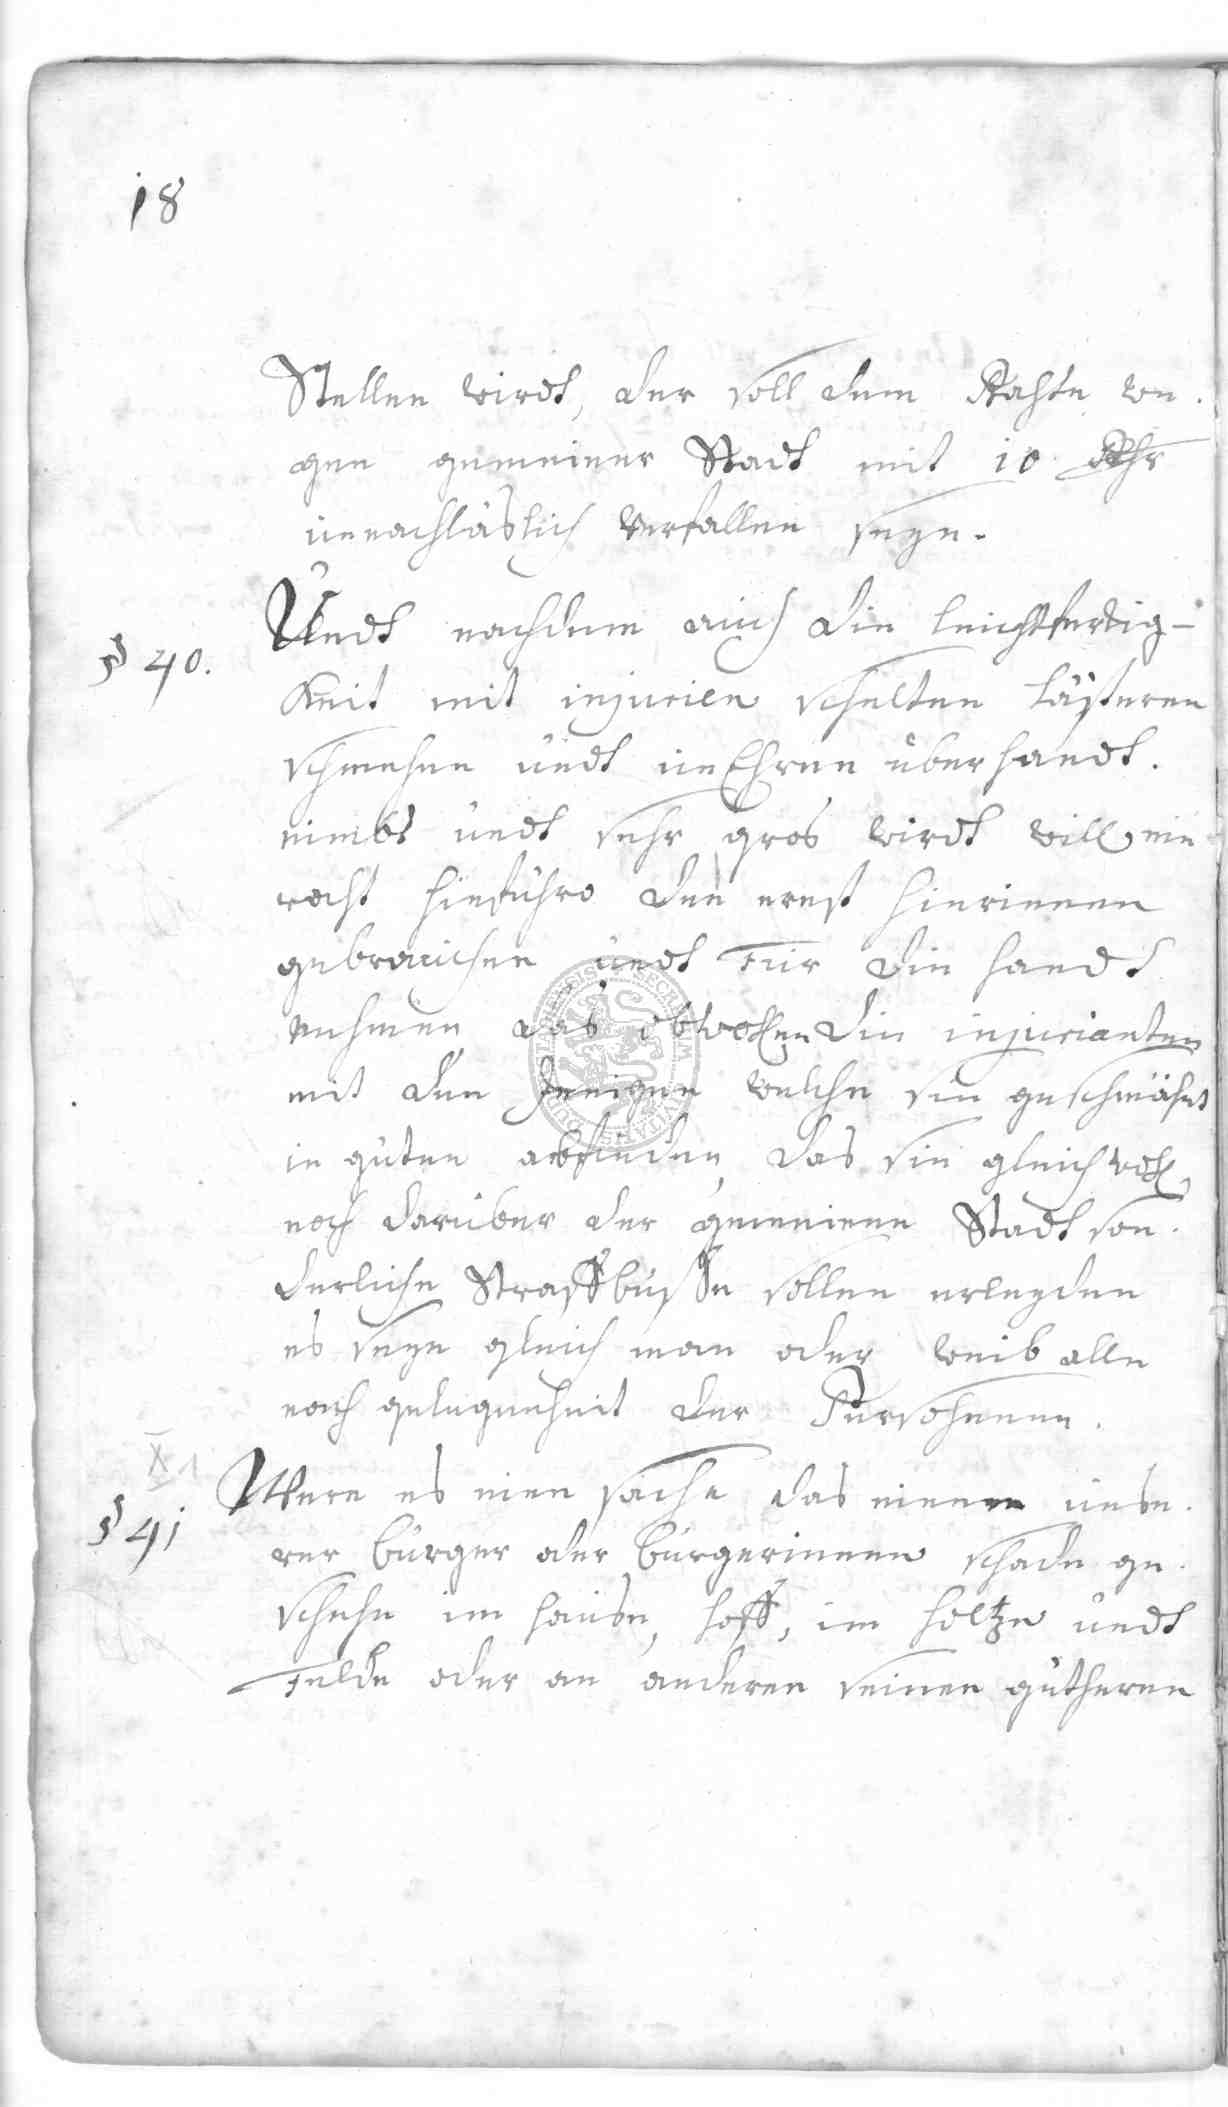 18
Stellen wirdt, der soll dem Rahte we.
gen gemeiner Stadt mit 10 Rthr
unnachläslich verfallen seyn.
§ 40.
Undt nachdem auch die leichtfertig-
Keit mit injurien schelten lästeren
schmehen undt unEhren überhandt.
nimbt undt sehr gros wirdt will ein
raht hinführo den ernst hierinnen
gebrauchen undt Für die handt
nehmen, das obwohlen die injurianten
mit den Jenigen welche sie geschmähet
in güten abfinden, das sie gleichwohl
noch darüber der gemeinen Stadt son.
derliche Straffbusse sollen erlegden
es seye gleich man oder weib alle
nach gelegenheit der Persohnen.
X 1
§ 41
Were es eien sache das einem unse.
rer bürger oder bürgerinnen schade ge.
schehe im hause, hoff, im holtze undt
Felde oder an anderen seinen gütheren
SECRETUM CIVITATIS